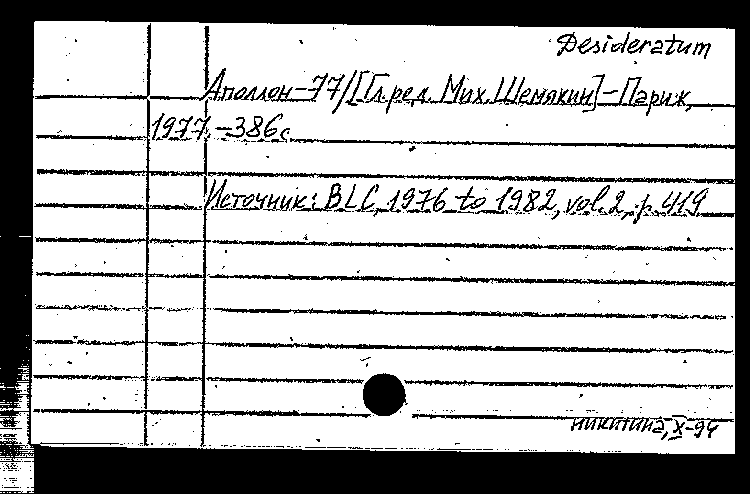 Desideratum
Аполлон-77/[Гл.ред. Мих. Шемякин]-Париж,
1977.-386с.
Источник: BLC, 1976 to 1982, vol.2, p.419
никитина, X-94